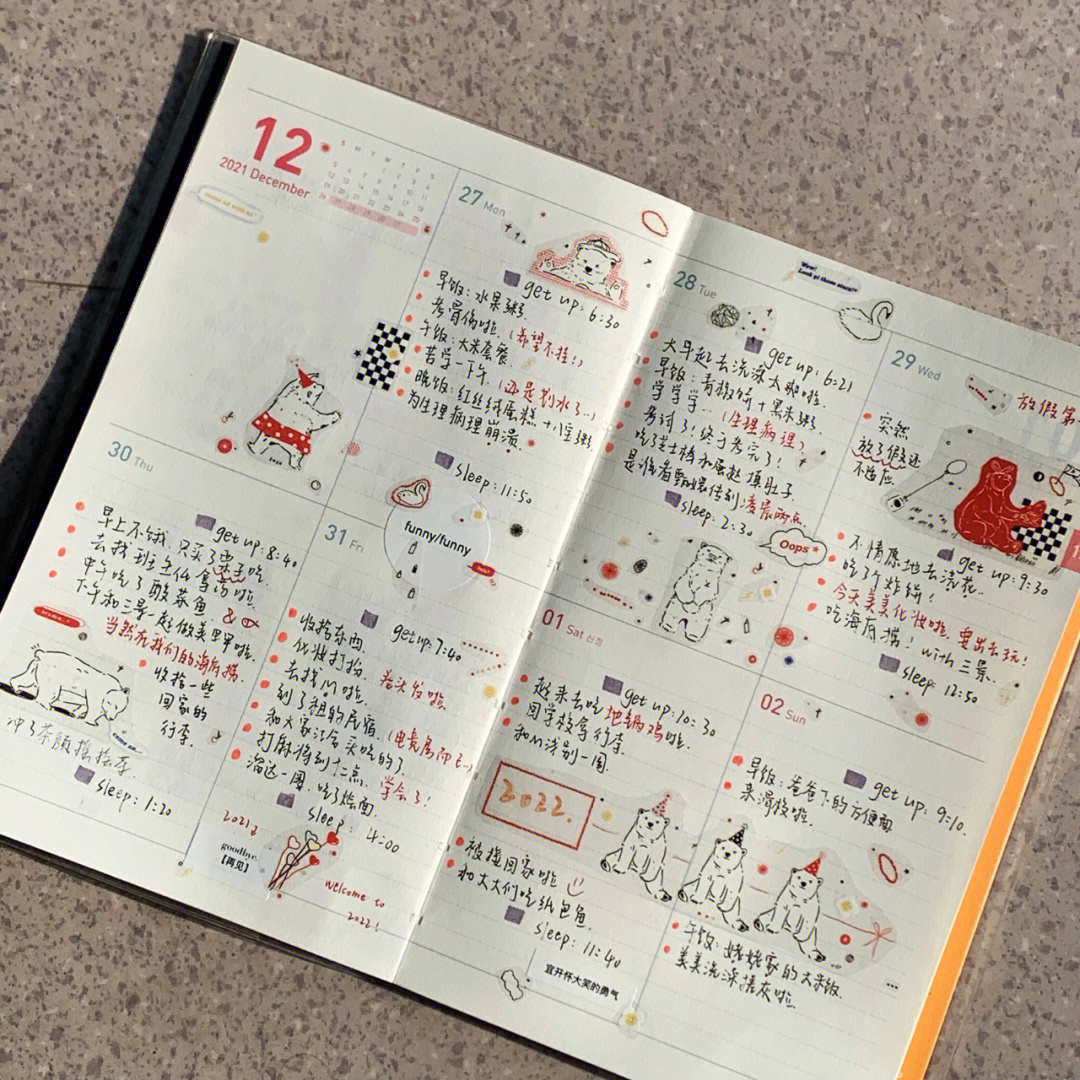 12
2021 December
S M T W T F S
27 Mon
get up: 6:30
早饭: 水果粥
考骨伤啦 (希望不挂!)
午饭: 大米套餐
苦学一下午 (还是划水了...)
晚饭: 红丝绒蛋糕+八宝粥
为生理病理崩溃
sleep: 11:50
28 Tue
Wow!
Look at those stars!!
get up: 6:21
大早起去洗澡 太爽啦
早饭: 青椒饼+黑米粥
学学学... (生理病理)
考试了! 终于考完了!
吃了芝士棒和蛋挞 摸肚子
是谁看甄嬛传到凌晨两点
sleep: 2:30
Oops
29 Wed
放假第
突然
放了假还
不适应
get up: 9:30
不情愿地去浇花
吃了个炸饼!
今天美美化妆啦 要出去玩!
吃海底捞! with 三景
sleep: 12:50
30 Thu
get up: 8:40
早上不饿 只买了枣子吃
去找班主任拿药啦
中午吃了酸菜鱼 &
下午和三景一起做美甲啦
当然有我们的海底捞
收拾一些
回家的
行李
冲了茶颜摇摇奈
sleep: 1:20
31 Fri
funny/funny
get up: 7:40
收拾东西
化妆打扮 卷头发啦
去找M啦
到了租的民宿 (电竞房而已...)
和大家汇合 买吃的了
打麻将到十二点 学会了!
溜达一圈 吃了烩面
sleep: 4:00
2021
goodbye.
【再见】
welcome to
2022!
01 Sat 신정
get up: 10:30
起来去吃地锅鸡啦
回学校拿行李
和M浅别一周
2022.
被接回家啦
和大大们吃纸包鱼
sleep: 11:40
宜开怀大笑的勇气
02 Sun
get up: 9:10.
早饭: 爸爸下的方便面
来滑板啦
午饭: 姥姥家的大米饭
美美洗澡搓灰啦